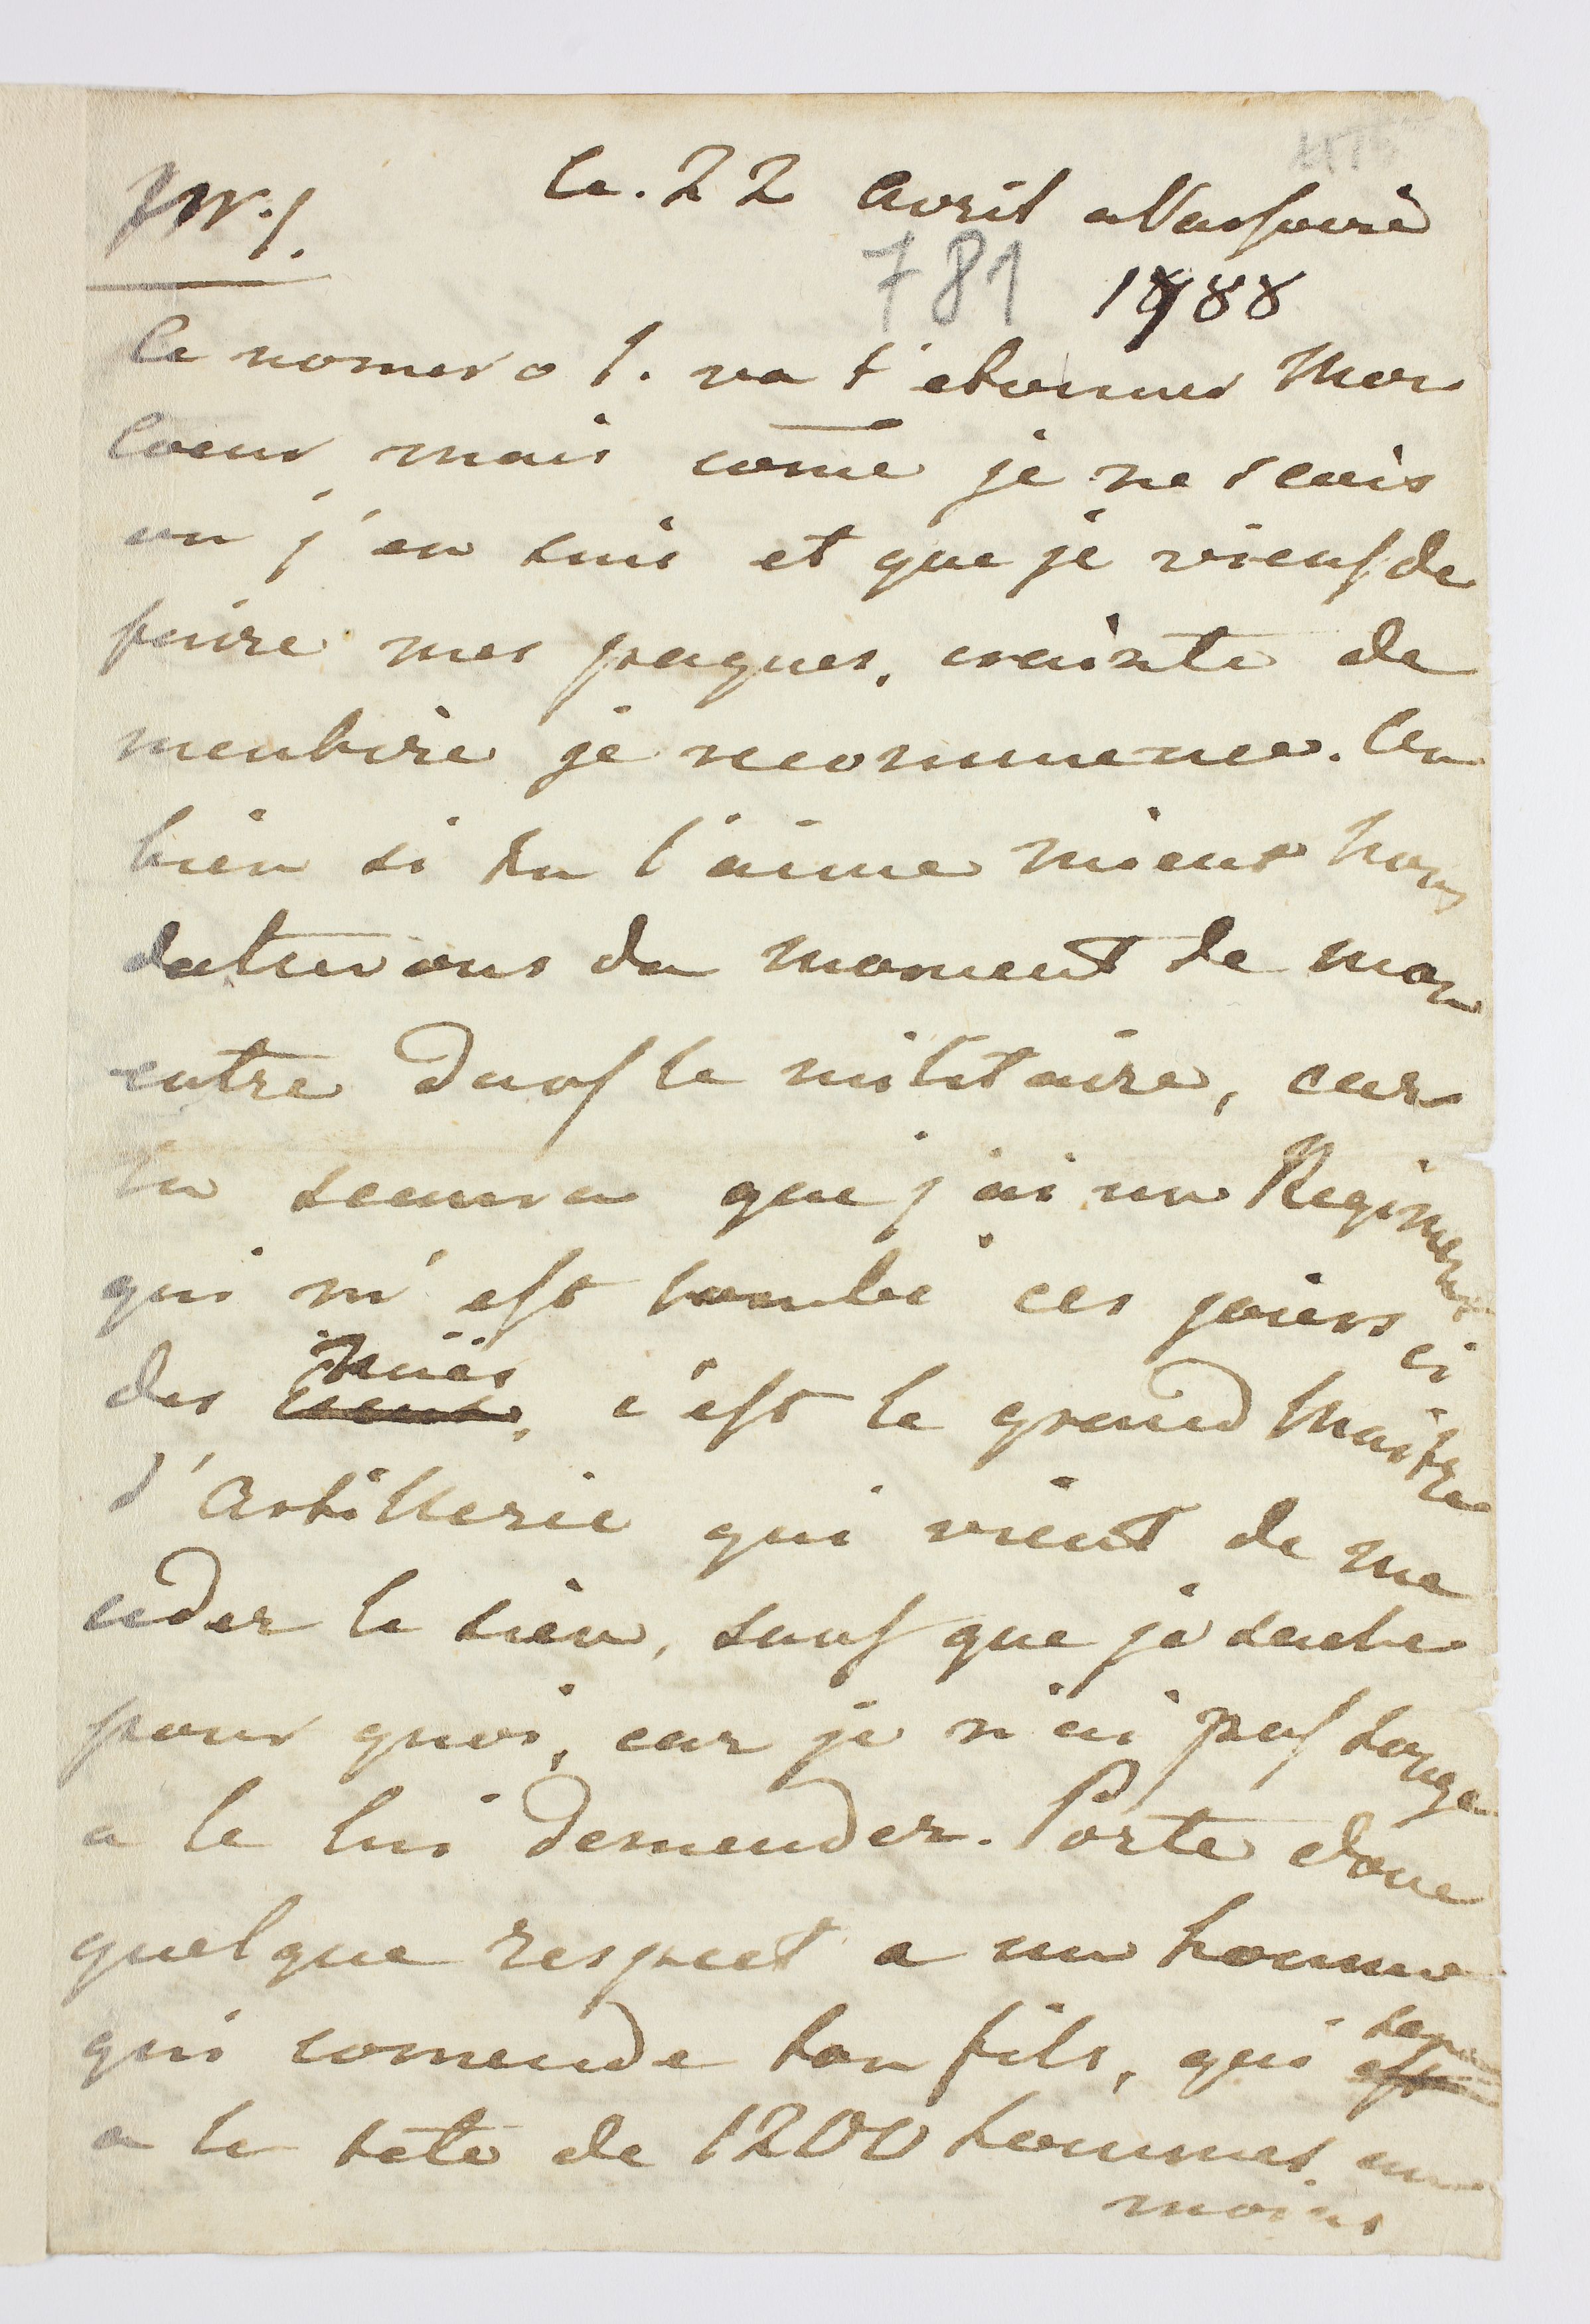 Nr. 1.
Ce. 22 Avril a Varsovie
781 1788
Ce nomero 1. va t'etonner Mon
Coeur mais come je ne scais
ou j'en suis et que je viens de
faire mes paques, crainte de
mentire je recommence. Ou
bien si tu l'aime mieux nous
daterons du moment de mon
entre dans le militaire, car
tu scaura que j'ai un Regiment
qui m'est tombé ces jours ci
des nuës
cieux, c'est le grand Maitre
d'Artillerie qui vient de me
ceder le sien, sans que je sache
pour quoi, car je n'ai pas songe
a le lui demender. Porte donc
quelque respect a un homme
qui comende ton fils, qui sera
est
a la tete de 1200 hommes au
moins